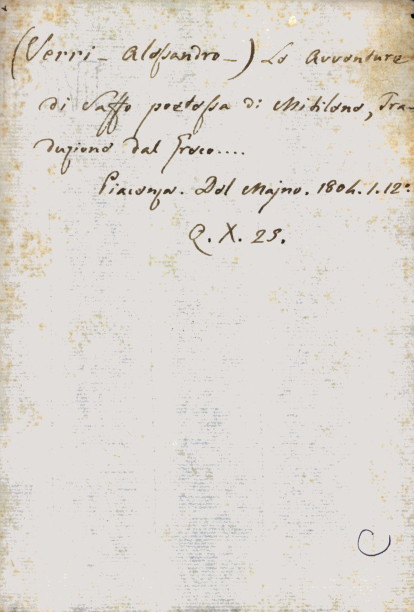 (Verri - Alessandro -) Le Avventure
di Saffo poetessa di Mitilene, Tra-
duzione dal Greco....
Piacenza. Del Majno. 1804. 1. 12°.
Q. X. 25.
C